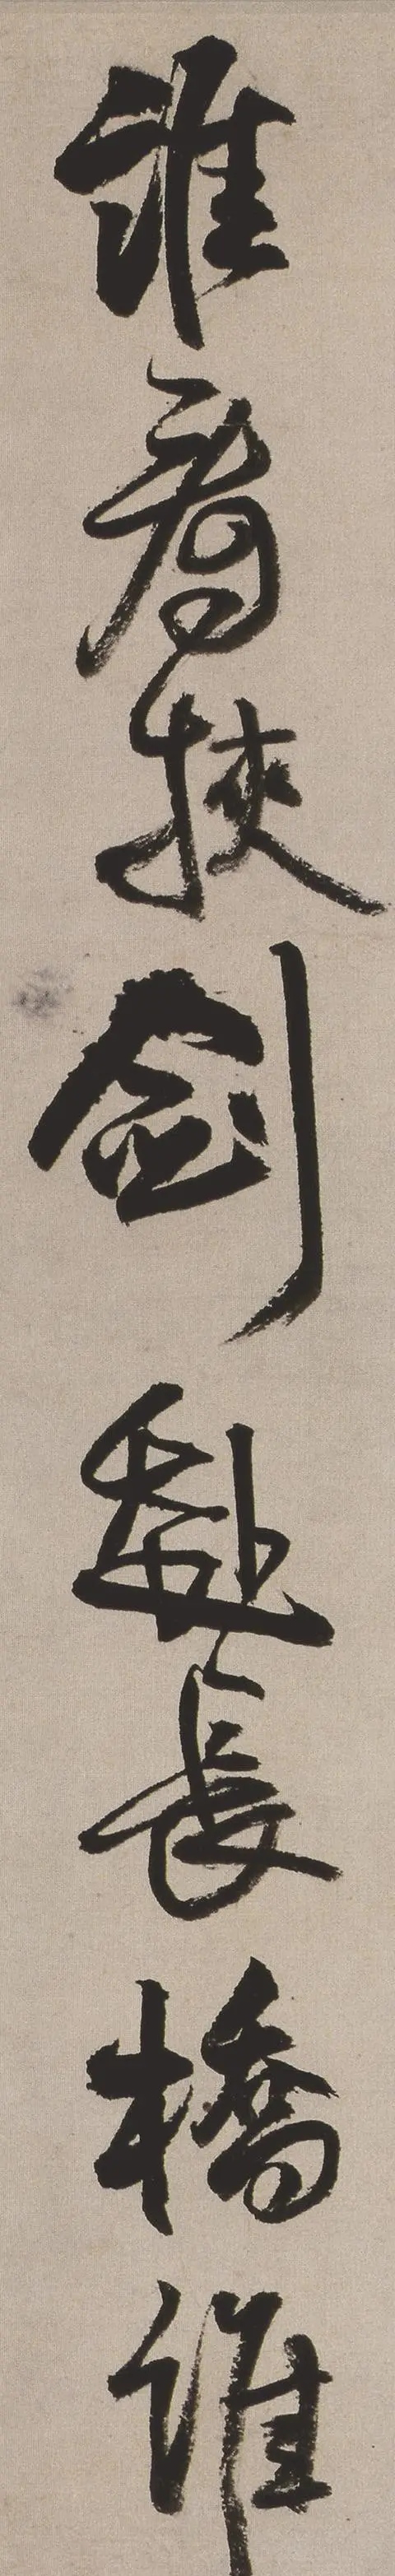 誰看挾劍赴長橋誰